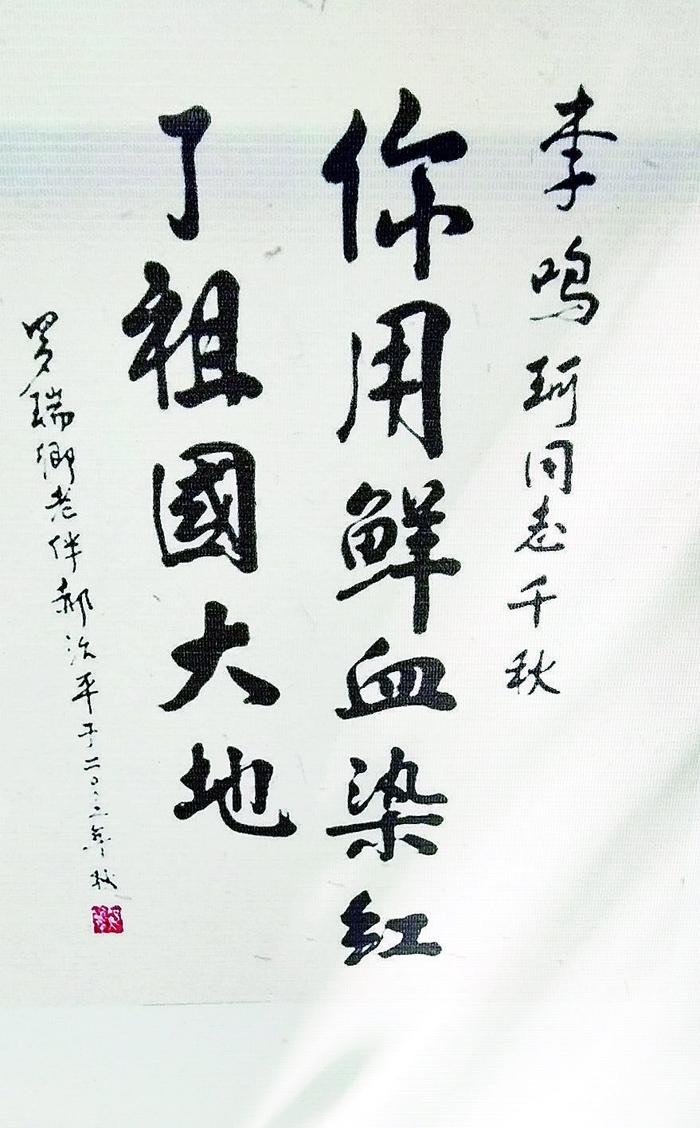 李鸣珂同志千秋
你用鲜血染红
了祖國大地
罗瑞卿老伴郝治平于二〇〇二年秋